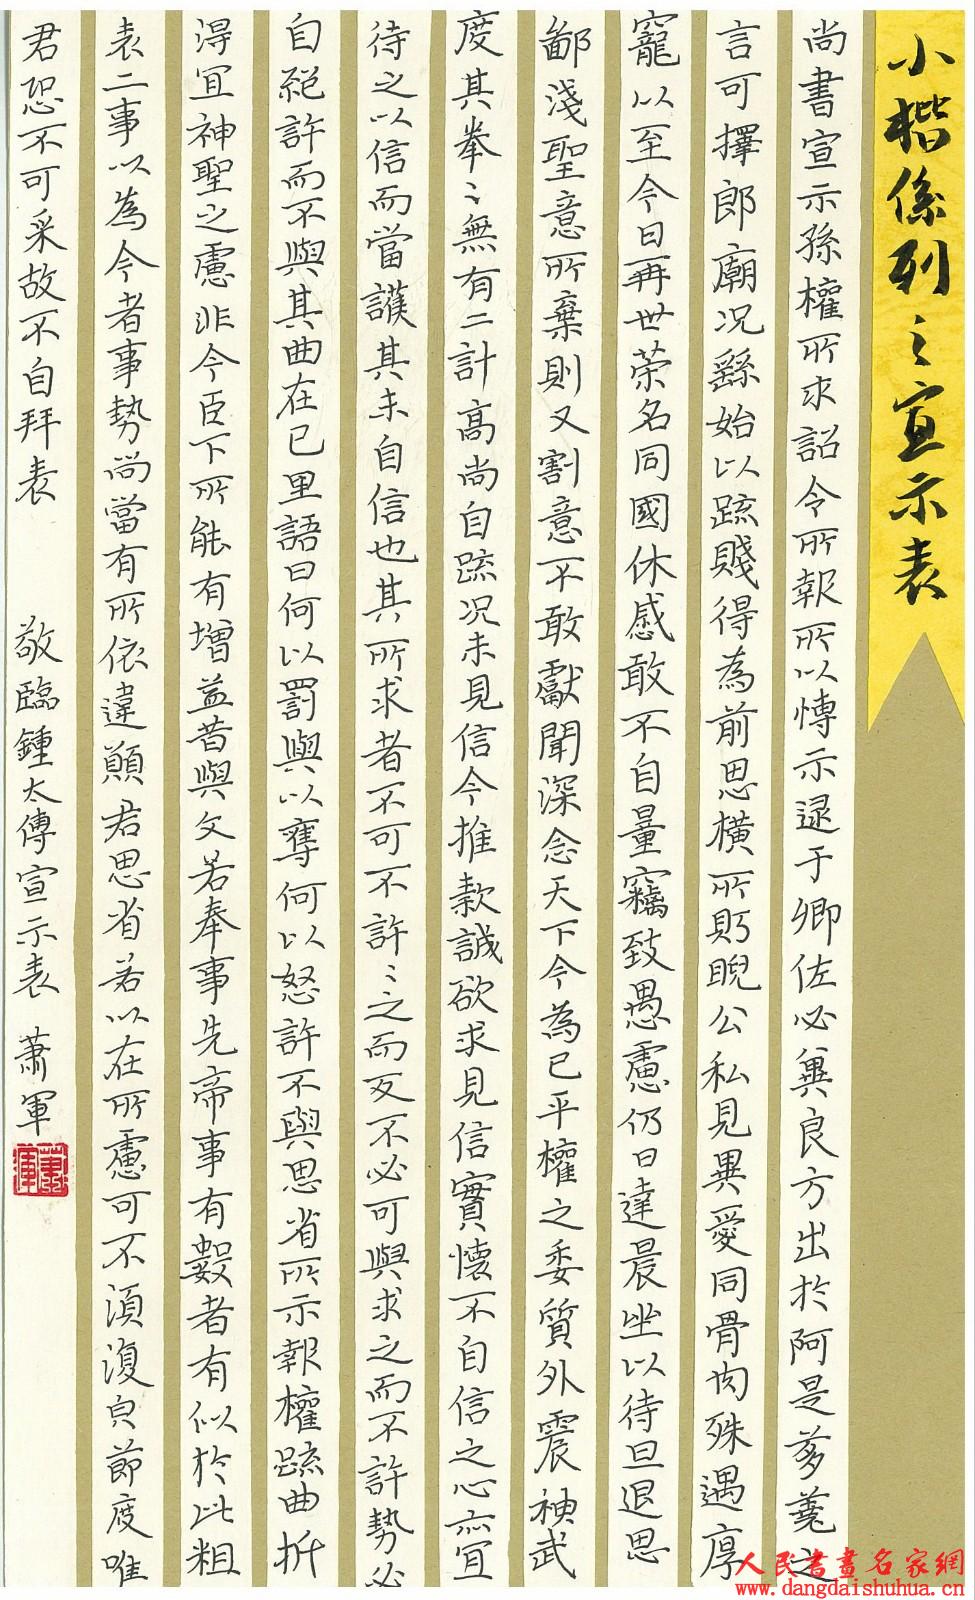 小楷係列之宣示表
尚書宣示孫權所求詔令所報所以博示逮于卿佐必冀良方出於阿是芻蕘之
言可擇郎廟況繇始以疏賤得為前思橫所眄睨公私見異愛同骨肉殊遇厚
寵以至今日再世荣名同國休慼敢不自量竊致愚慮仍日達晨坐以待旦退思
鄙淺聖意所棄則又割意不敢獻聞深念天下今為已平權之委質外震神武
度其拳々無有二計高尚自疏況未見信今推款誠欲求見信實懷不自信之心亦宜
待之以信而當護其未自信也其所求者不可不許々之而反不必可與求之而不許勢必
自絕許而不與其曲在已里語曰何以罰與以奪何以怒許不與思省所示報權疏曲折
得宜神聖之慮非今臣下所能有增益昔與文若奉事先帝事有數者有似於此粗
表二事以為今者事勢尚當有所依違願君思省若以在所慮可不須復白節度唯
君恐不可采故不自拜表 敬臨鍾太傅宣示表 蕭軍
蕭軍
人民書畫名家網
www.dangdaishuhua.cn